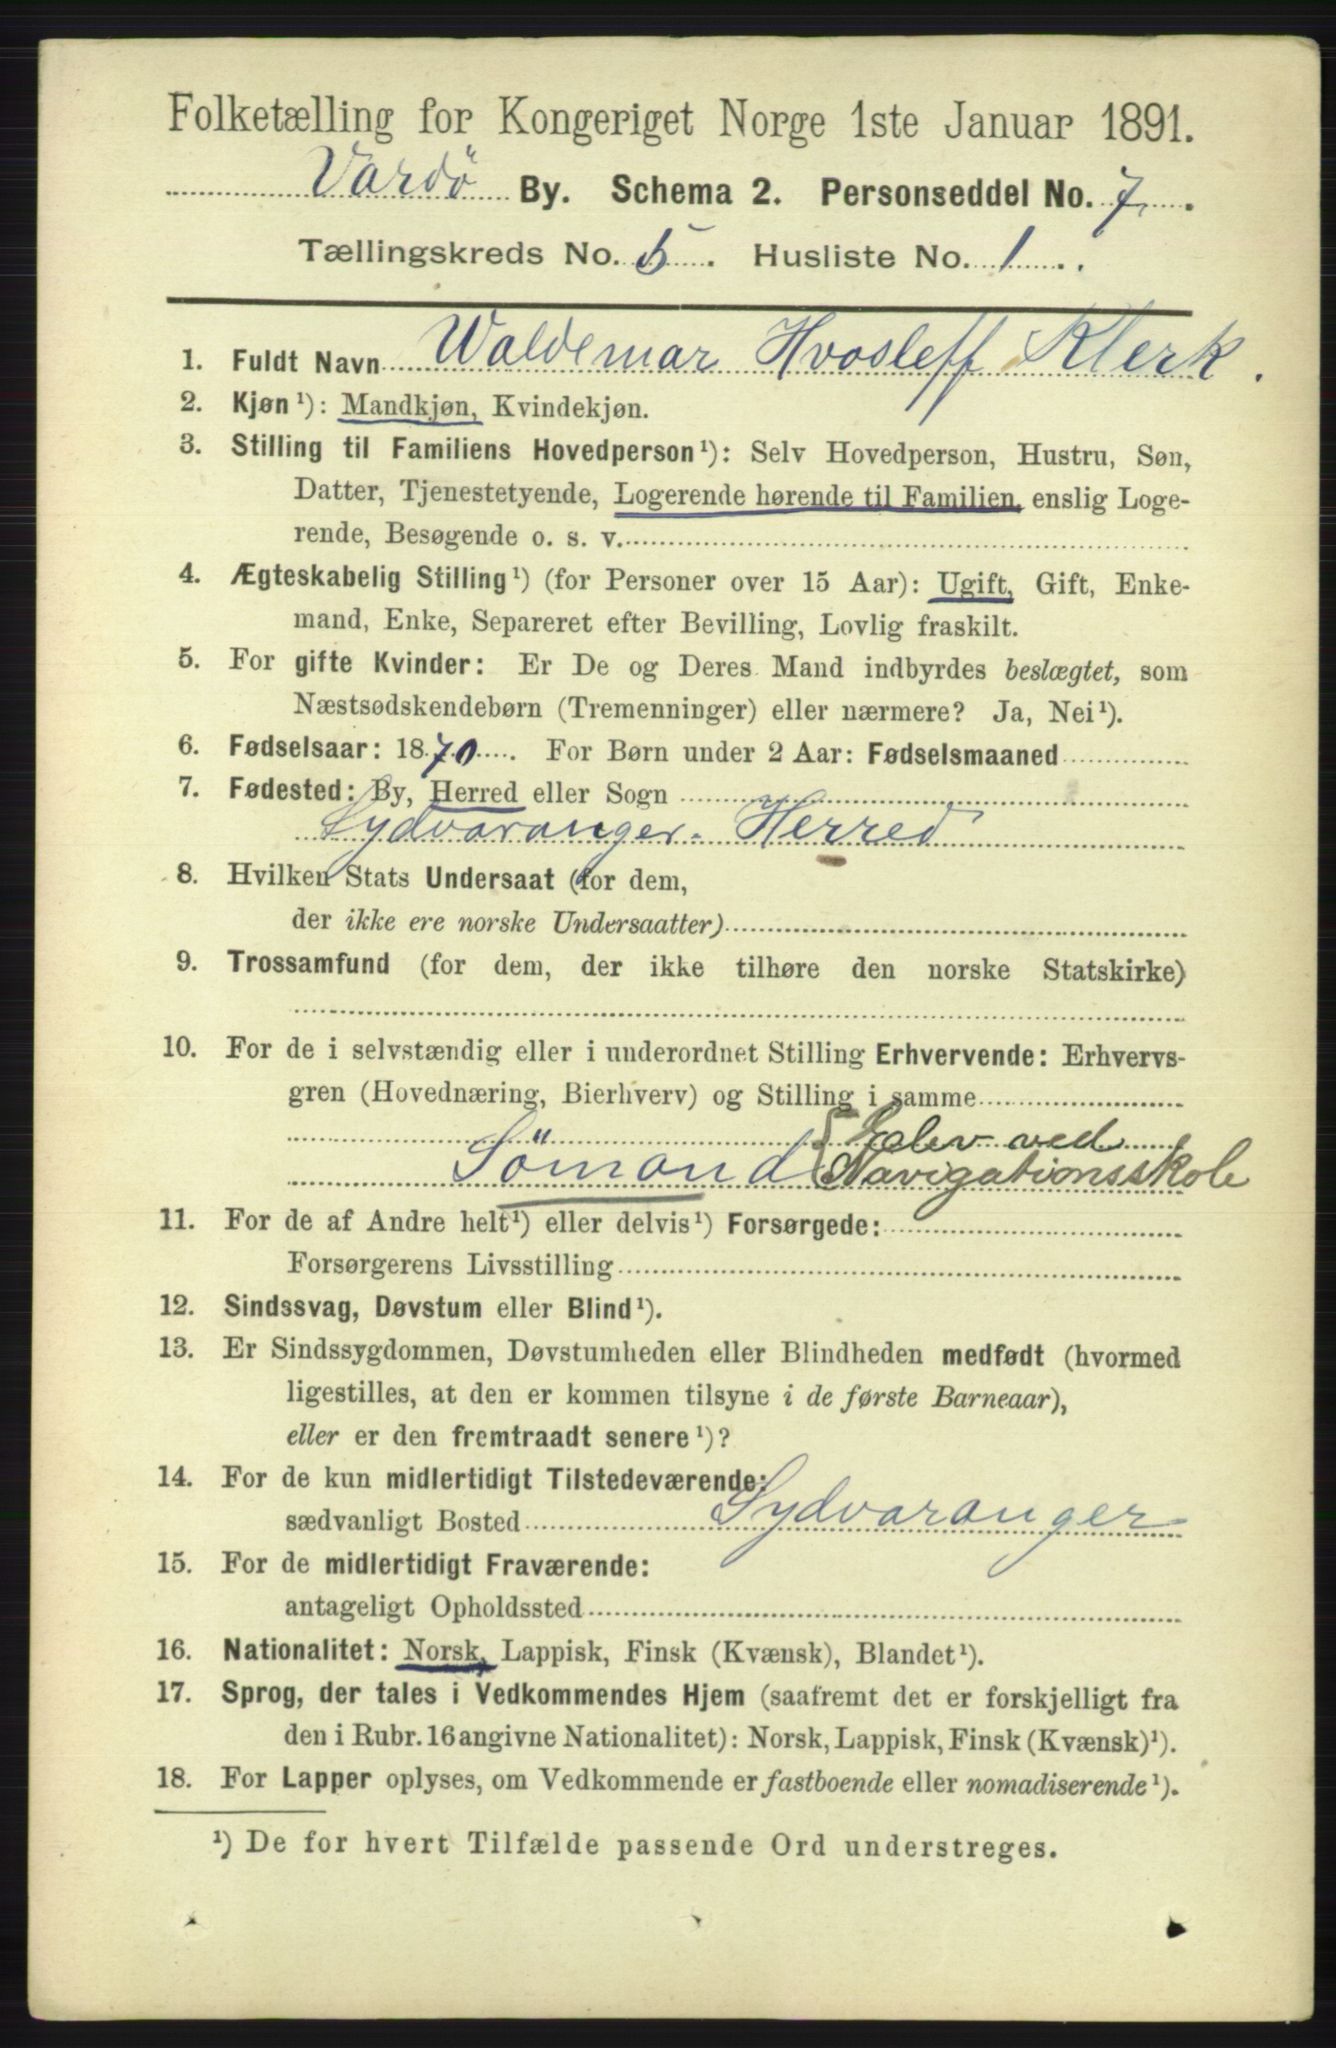 Folketælling for Kongeriget Norge 1ste Januar 1891.
Vardö By. Schema 2. Personseddel No. 7.
Tællingskreds No. 5. Husliste No. 1.
1. Fuldt Navn Waldemar Hvosleff Klerk.
2. Kjøn¹): Mandkjøn, Kvindekjøn.
3. Stilling til Familiens Hovedperson¹): Selv Hovedperson, Hustru, Søn,
Datter, Tjenestetyende, Logerende hørende til Familien, enslig Loge-
rende, Besøgende o. s. v.
4. Ægteskabelig Stilling¹) (for Personer over 15 Aar): Ugift, Gift, Enke-
mand, Enke, Separeret efter Bevilling, Lovlig fraskilt.
5. For gifte Kvinder: Er De og Deres Mand indbyrdes beslægtet, som
Næstsødskendebørn (Tremenninger) eller nærmere? Ja, Nei¹).
6. Fødselsaar: 1870. For Børn under 2 Aar: Fødselsmaaned
7. Fødested: By, Herred eller Sogn
Sydvaranger. Herred
8. Hvilken Stats Undersaat (for dem,
der ikke ere norske Undersaatter)
9. Trossamfund (for dem, der ikke tilhøre den norske Statskirke)
10. For de i selvstændig eller i underordnet Stilling Erhvervende: Erhvervs-
gren (Hovednæring, Bierhverv) og Stilling i samme
Elev ved
Sömand Navigationsskole
11. For de af Andre helt¹) eller delvis¹) Forsørgede:
Forsørgerens Livsstilling
12. Sindssvag, Døvstum eller Blind¹).
13. Er Sindssygdommen, Døvstumheden eller Blindheden medfødt (hvormed
ligestilles, at den er kommen tilsyne i de første Barneaar),
eller er den fremtraadt senere¹)?
14. For de kun midlertidigt Tilstedeværende:
sædvanligt Bosted Sydvaranger
15. For de midlertidigt Fraværende:
antageligt Opholdssted
16. Nationalitet: Norsk, Lappisk, Finsk (Kvænsk), Blandet¹).
17. Sprog, der tales i Vedkommendes Hjem (saafremt det er forskjelligt fra
den i Rubr. 16 angivne Nationalitet): Norsk, Lappisk, Finsk (Kvænsk)¹).
18. For Lapper oplyses, om Vedkommende er fastboende eller nomadiserende¹).
¹) De for hvert Tilfælde passende Ord understreges.